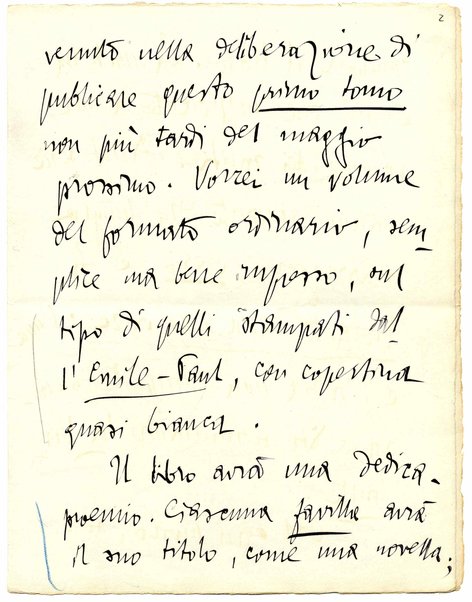 2
venuto nella deliberazione di
publicare questo primo tomo
non più tardi del maggio
prossimo. Vorrei un volume
del formato ordinario, sem-
plice ma bene impresso, sul
tipo di quelli stampati dal
l'Emile-Paul, con copertina
quasi bianca.
Il libro avrà una dedica-
proemio. Ciascuna favilla avrà
il suo titolo, come una novella;